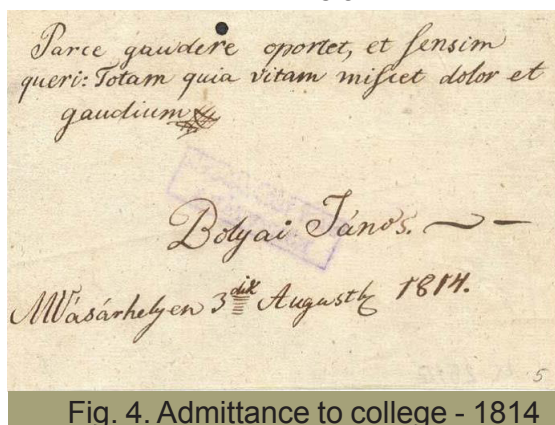 Parce gaudere oportet, et sensim
queri: Totam quia vitam miscet dolor et
gaudium
Bolyai János.
MVásárhelyen 3dik Augustb 1814.
5
Fig. 4. Admittance to college - 1814